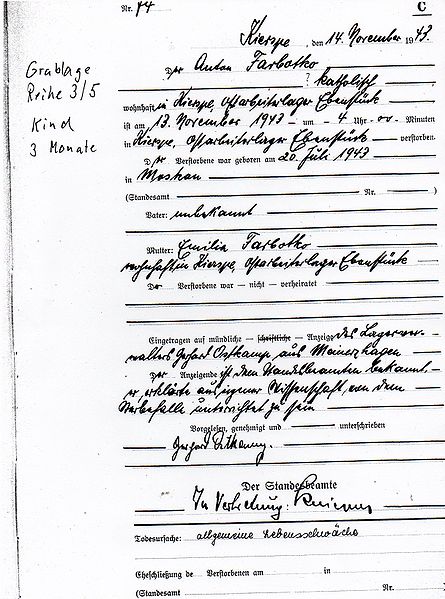 Nr. 74
C
Kierspe, den 14. November 1943.
Grablage
Reihe 3/5
Kind
3 Monate
Der Anton Tarbotko
? katholisch
wohnhaft in Kierspe, Ostarbeiterlager Ebenstück
ist am 13. November 1943 um 4 Uhr oo Minuten
in Kierspe, Ostarbeiterlager Ebenstück verstorben.
Der Verstorbene war geboren am 20. Juli 1943
in Moskau
(Standesamt Nr. )
Vater: unbekannt
Mutter: Emilia Tarbotko
wohnhaft in Kierspe, Ostarbeiterlager Ebenstück
De Verstorbene war — nicht — verheiratet
Eingetragen auf mündliche — schriftliche — Anzeige des Lagerver-
walters Gerhard Ostkamp aus Meinerzhagen
Der Anzeigende ist dem Standesbeamten bekannt,
er erklärte aus eigener Wissenschaft von dem
Sterbefalle unterrichtet zu sein
Vorgelesen, genehmigt und unterschrieben
Gerhard
Der Standesbeamte
In Vertretung:
Todesursache: allgemeine Lebensschwäche
Eheschließung de Verstorbenen am in
(Standesamt Nr.